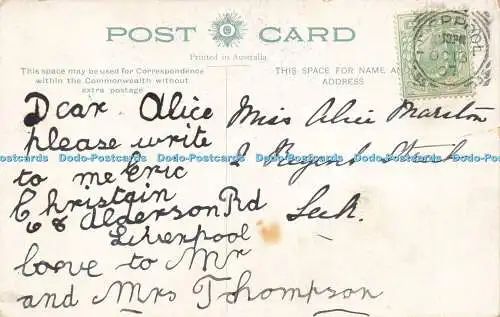 POST CARD
Printed in Australia
This space may be used for Correspondence
within the Commonwealth without
extra postage
THIS SPACE FOR NAME AND
ADDRESS
Dear Alice
please write
to me Eric
Christain
68 Alderson Rd
Liverpool
love to Mr
and Mrs Thompson
Miss Alice Marston
2 Regent Street
Leek.
Dodo-Postcards Dodo-Postcards Dodo-Postcards Dodo-Postcards Dodo-Postcards